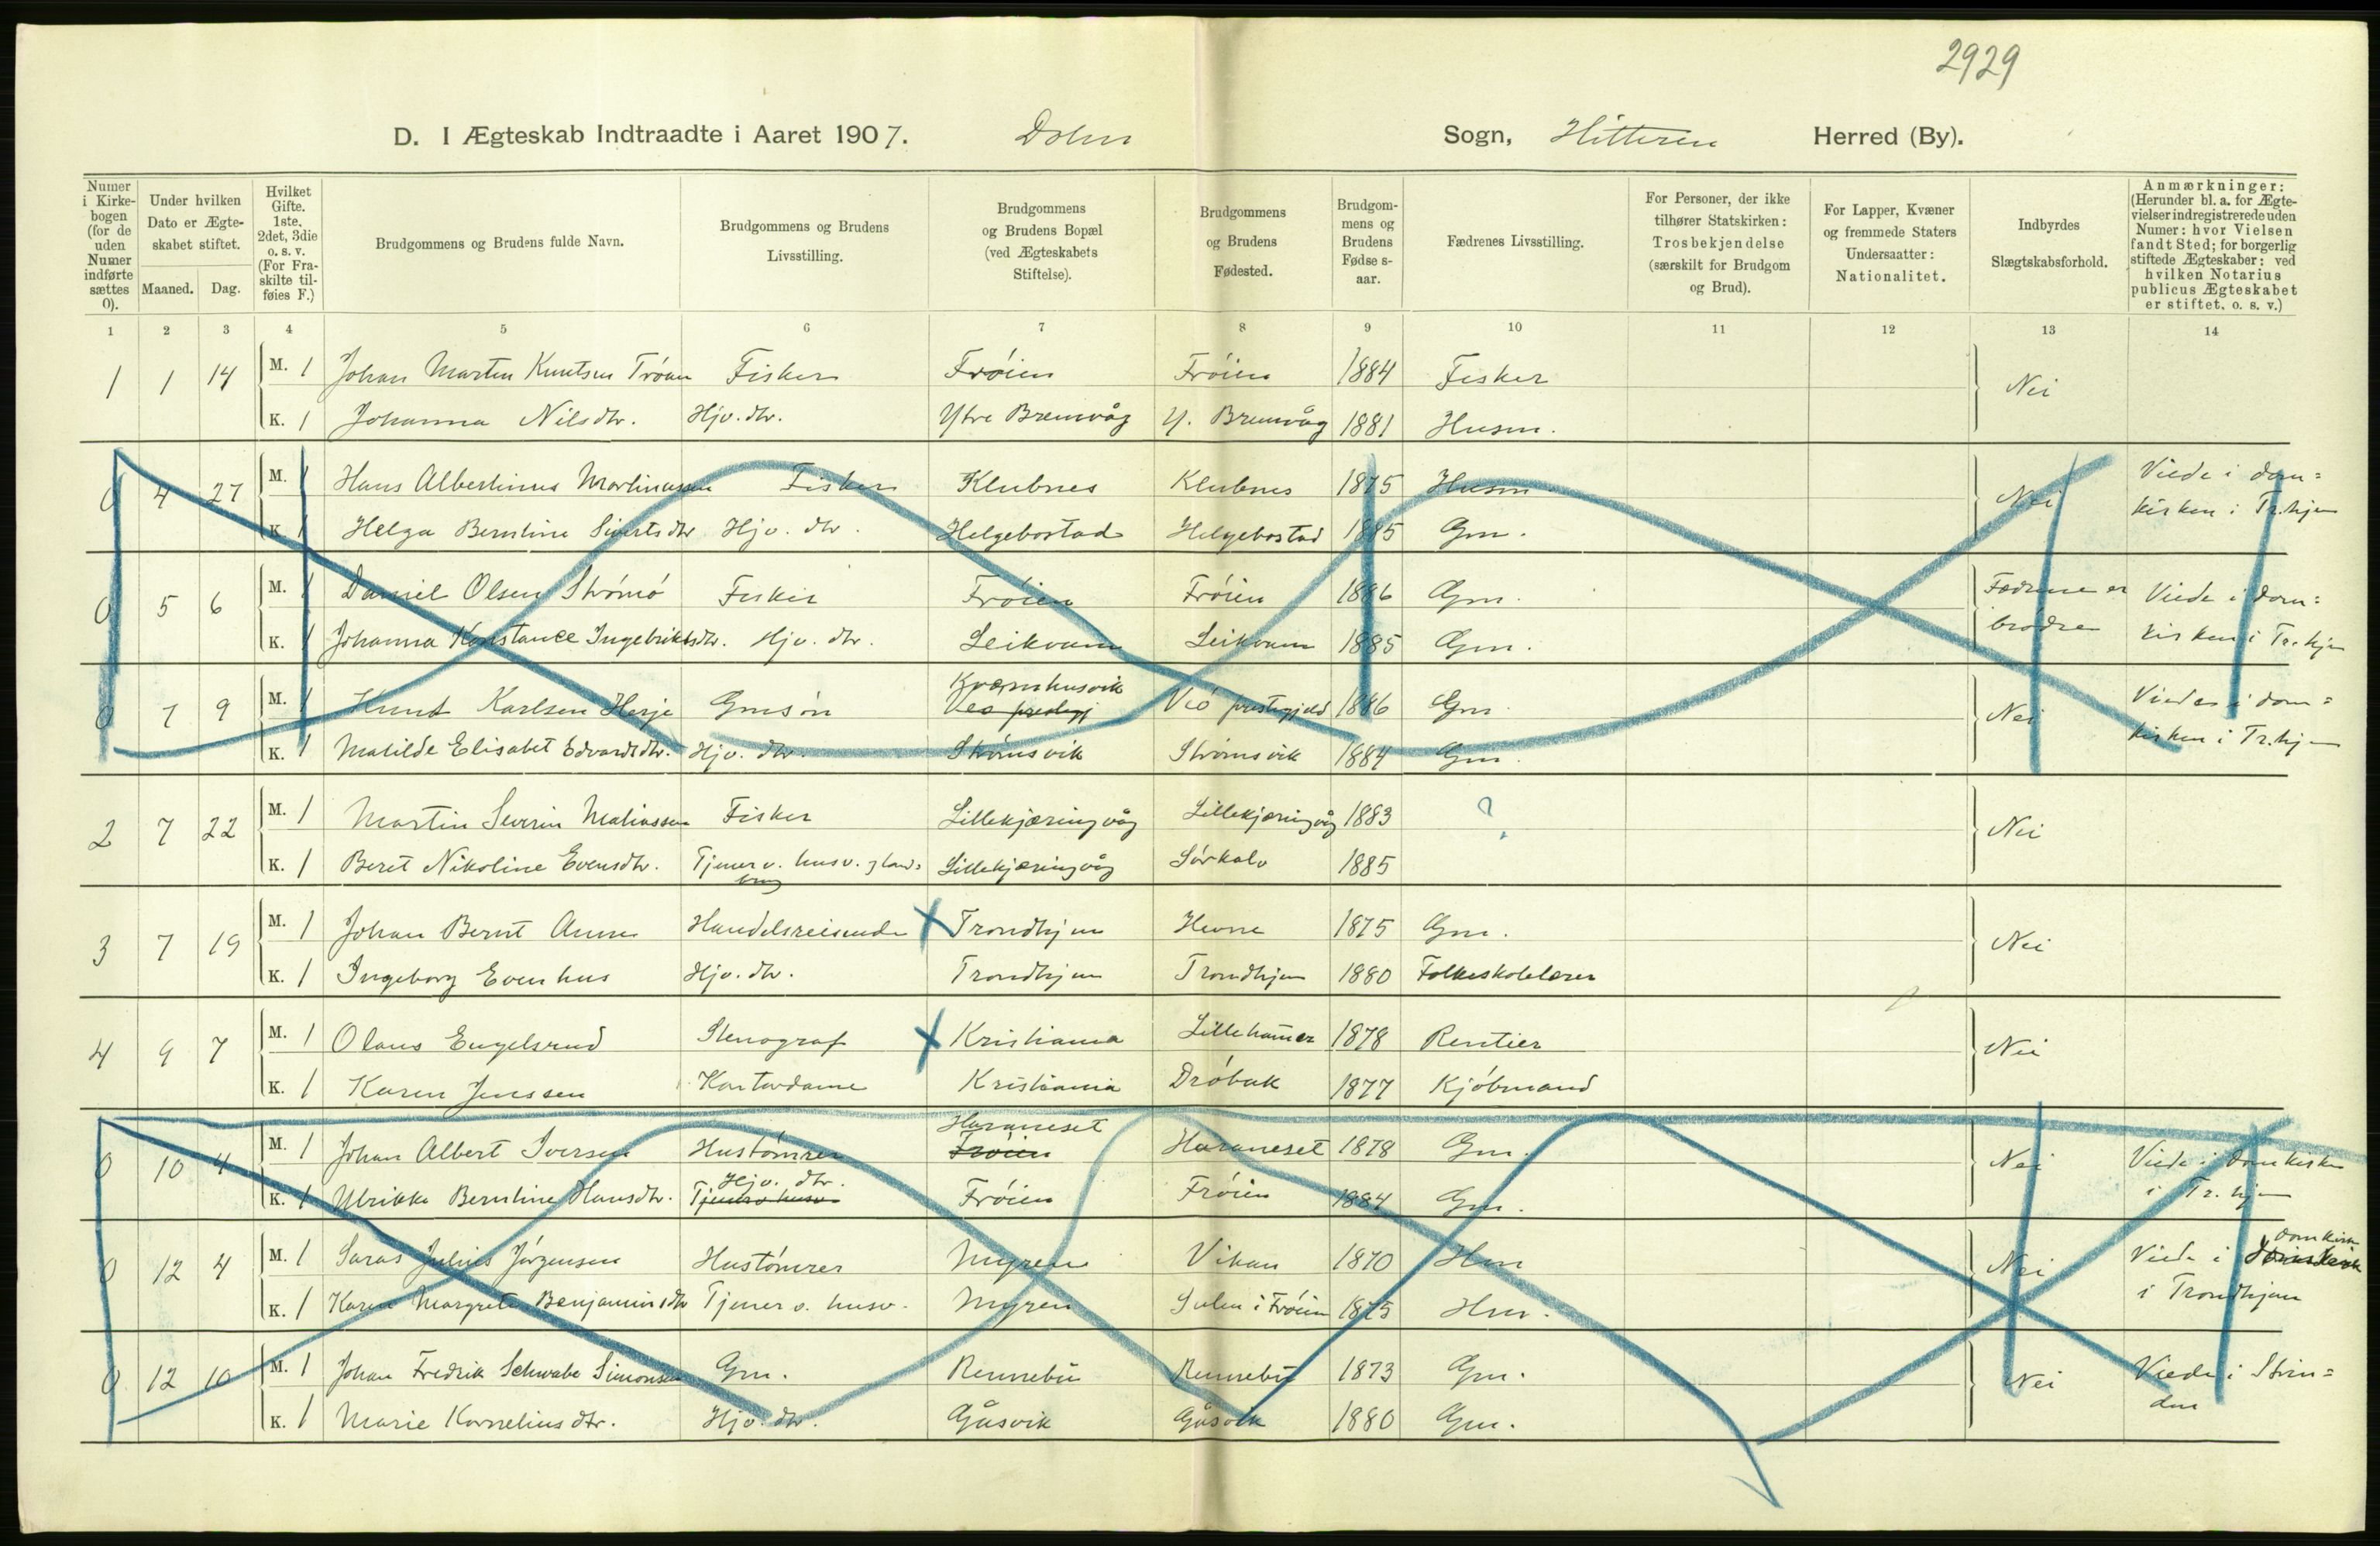 2929
D. I Ægteskab Indtraadte i Aaret 1907. Dolm Sogn, Hitteren Herred (By).
Numer i Kirkebogen (for de uden Numer indførte sættes 0). Under hvilken Dato er Ægteskabet stiftet. Maaned. Dag. Hvilket Gifte. 1ste, 2det, 3die o. s. v. (For Fraskilte tilføies F.) Brudgommens og Brudens fulde Navn. Brudgommens og Brudens Livsstilling. Brudgommens og Brudens Bopæl (ved Ægteskabets Stiftelse). Brudgommens og Brudens Fødested. Brudgommens og Brudens Fødselsaar. Fædrenes Livsstilling. For Personer, der ikke tilhører Statskirken: Trosbekjendelse (særskilt for Brudgom og Brud). For Lapper, Kvæner og fremmede Staters Undersaatter: Nationalitet. Indbyrdes Slægtskabsforhold. Anmærkninger: (Herunder bl. a. for Ægtevielser indregistrerede uden Numer: hvor Vielsen fandt Sted; for borgerlig stiftede Ægteskaber: ved hvilken Notarius publicus Ægteskabet er stiftet, o. s. v.)
1 2 3 4 5 6 7 8 9 10 11 12 13 14
1 1 14 M. 1 Johan Martin Knutsen Trøan Fisker Frøien Frøien 1884 Fisker Nei
K. 1 Johanna Nilsdtr. Hjv. dtr. Ytre Bremvåg Y. Bremvåg 1881 Husm.
0 4 27 M. 1 Hans Albertinus Martinussen Fisker Klubnes Klubnes 1875 Husm. Nei Viede i dom=
K. 1 Helga Berntine Sivertsdtr Hjv. dtr. Helgebostad Helgebostad 1885 Gm. kirken i Tr.hjem
0 5 6 M. 1 Daniel Olsen Strømø Fisker Frøien Frøien 1886 Gm. Fædrene er Viede i dom=
K. 1 Johanna Konstance Ingebriktsdtr. Hjv. dtr. Leikvam Leikvam 1885 Gm. brødre kirken i Tr.hjem
Kværnhusvik
0 7 9 M. 1 Knut Karlsen Herje Gmsøn Veø prestegj Veø prestegjeld 1886 Gm. Nei Viedes i dom=
K. 1 Matilde Elisabet Edvardsdtr. Hjv. dtr. Strømsvik Strømsvik 1884 Gm. kirken i Tr.hjem
2 7 22 M. 1 Martin Severin Matiassen Fisker Lillekjæringvåg Lillekjæringvåg 1883 ? Nei
K. 1 Beret Nikoline Evensdtr. Tjener v. husv. og land= Lillekjæringvåg Sørkalv 1885
brug
3 7 19 M. 1 Johan Bernt Aune Handelsreisende Trondhjem Hevne 1875 Gm. Nei
K. 1 Ingeborg Evenhus Hjv. dtr. Trondhjem Trondhjem 1880 Folkeskolelærer
4 9 7 M. 1 Olaus Engelsrud Stenograf Kristiania Lillehamer 1878 Rentier Nei
K. 1 Karen Jenssen Kontordame Kristiania Drøbak 1877 Kjøbmand
Havneset
0 10 4 M. 1 Johan Albert Iversen Hustømrer Frøien Havneset 1878 Gm. Nei Viede i domkirken
Hjv. dtr.
K. 1 Ulrikke Berntine Hansdtr. Tjener v. husv. Frøien Frøien 1884 Gm. i Tr.hjem
domkirk
0 12 4 M. 1 Julius Jørgensen Hustømrer Myren Vikan 1870 Hm Nei Viede i
K. 1 Karen Margrete Benjaminsdtr Tjener v. husv. Myren Sulen i Frøien 1875 Hm. i Trondhjem
0 12 10 M. 1 Johan Fredrik Schwabe Simonsen Gm. Rennebu Rennebu 1873 Gm. Nei Viede i Strin=
K. 1 Marie Kornelius dtr. Hjv. dtr. Gåsvik Gåsvik 1880 Gm. den